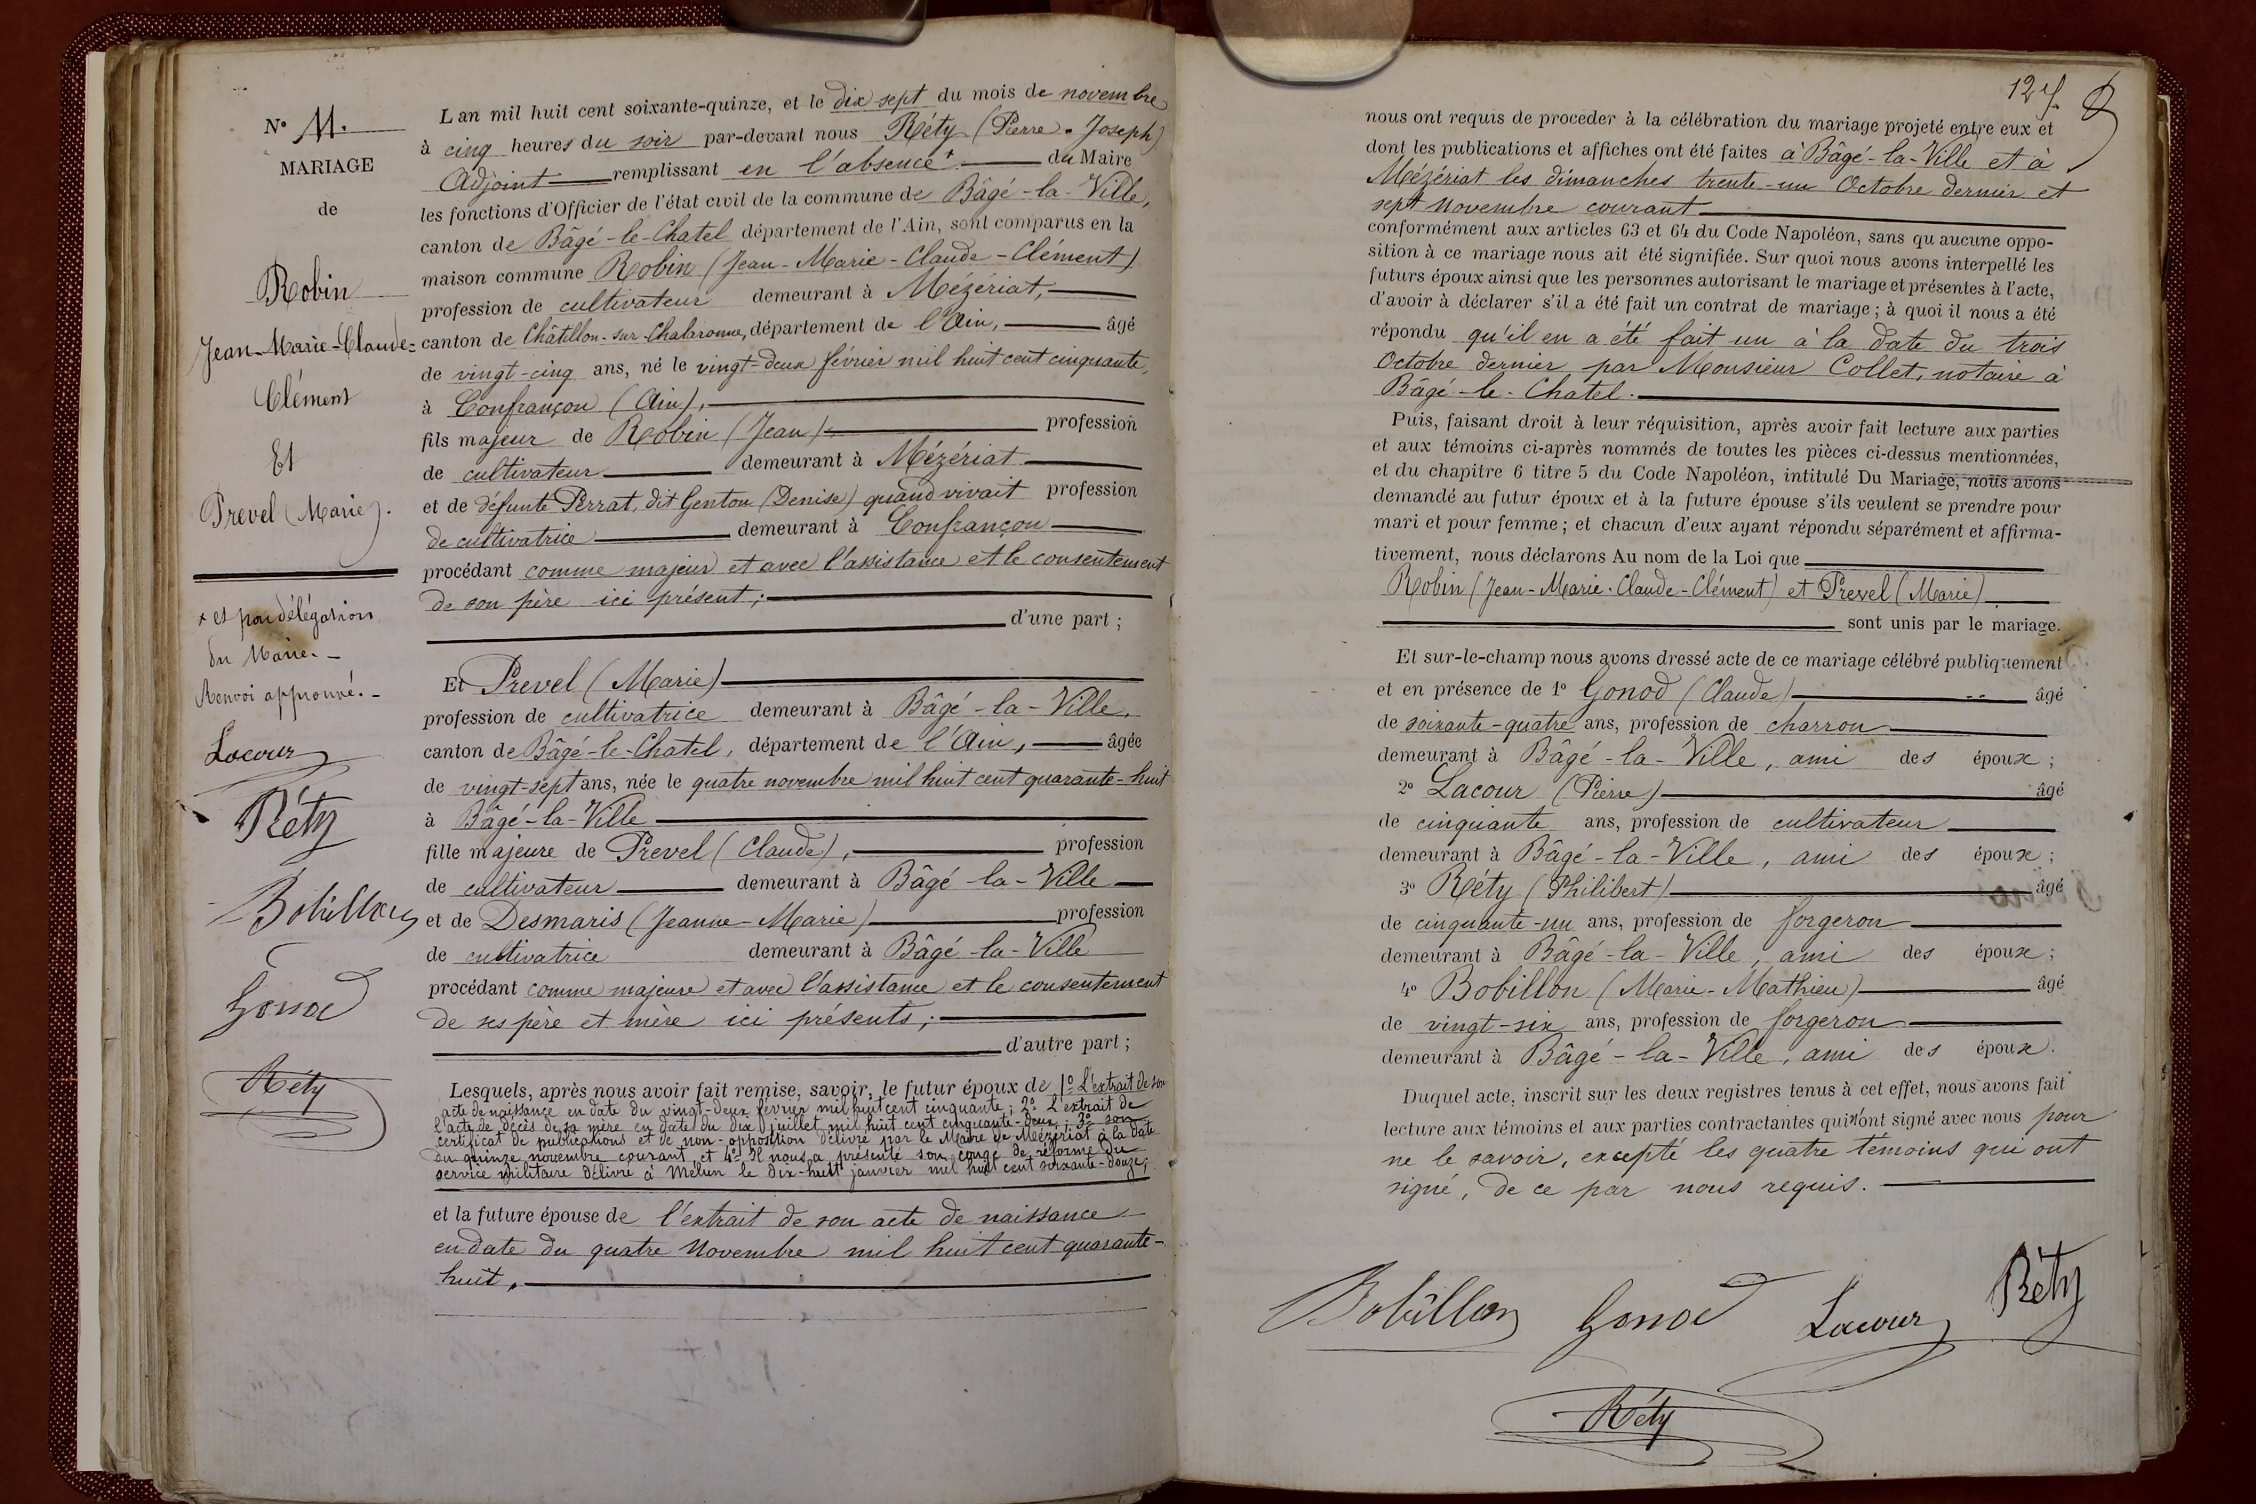 N° 11.
MARIAGE
de
Robin
Jean-Marie-Claude-
Clément
Et
Prevel (Marie).
+ et par délégation
du Maire. -
Renvoi approuvé. -
Lacour
Réty
Bobillon
Gonod
Réty
L'an mil huit cent soixante-quinze, et le dix sept du mois de novembre
à cinq heures du soir par-devant nous Réty (Pierre-Joseph)
Adjoint remplissant en l'absence + du Maire
les fonctions d'Officier de l'état civil de la commune de Bâgé-la-Ville,
canton de Bâgé-le-Chatel département de l'Ain, sont comparus en la
maison commune Robin (Jean-Marie-Claude-Clément)
profession de cultivateur demeurant à Mézériat,
canton de Châtillon-sur-Chalaronne, département de l'Ain, âgé
de vingt-cinq ans, né le vingt-deux février mil huit cent cinquante,
à Confrançon (Ain),
fils majeur de Robin (Jean) profession
de cultivateur demeurant à Mézériat
et de défunte Perrat, dit Genton (Denise) quand vivait profession
de cultivatrice demeurant à Confrançon
procédant comme majeur et avec l'assistance et le consentement
de son père ici présent;
d'une part;
Et Prevel (Marie)
profession de cultivatrice demeurant à Bâgé-la-Ville,
canton de Bâgé-le-Chatel, département de l'Ain, âgée
de vingt-sept ans, née le quatre novembre mil huit cent quarante-huit
à Bâgé-la-Ville
fille majeure de Prevel (Claude), profession
de cultivateur demeurant à Bâgé-la-Ville
et de Desmaris (Jeanne-Marie) profession
de cultivatrice demeurant à Bâgé-la-Ville
procédant comme majeure et avec l'assistance et le consentement
de ses père et mère ici présents;
d'autre part;
Lesquels, après nous avoir fait remise, savoir, le futur époux de 1° L'extrait de son
acte de naissance en date du vingt-deux février mil huit cent cinquante; 2° L'extrait de
l'acte de décès de sa mère en date du dix juillet mil huit cent cinquante-deux; 3° son
certificat de publications et de non-opposition délivré par le Maire de Mézériat à la date
du quinze novembre courant et 4° Il nous a présenté son congé de réforme du
service militaire délivré à Melun le dix-huit janvier mil huit cent soixante-douze;
et la future épouse de l'extrait de son acte de naissance
en date du quatre Novembre mil huit cent quarante-
huit,
127.
nous ont requis de procéder à la célébration du mariage projeté entre eux et
dont les publications et affiches ont été faites à Bâgé-la-Ville et à
Mézériat les dimanches trente-un Octobre dernier et
sept Novembre courant
conformément aux articles 63 et 64 du Code Napoléon, sans qu'aucune oppo-
sition à ce mariage nous ait été signifiée. Sur quoi nous avons interpellé les
futurs époux ainsi que les personnes autorisant le mariage et présentes à l'acte,
d'avoir à déclarer s'il a été fait un contrat de mariage; à quoi il nous a été
répondu qu'il en a été fait un à la date du trois
Octobre dernier par Monsieur Collet, notaire à
Bâgé-le-Chatel.
Puis, faisant droit à leur réquisition, après avoir fait lecture aux parties
et aux témoins ci-après nommés de toutes les pièces ci-dessus mentionnées,
et du chapitre 6 titre 5 du Code Napoléon, intitulé Du Mariage, nous avons
demandé au futur époux et à la future épouse s'ils veulent se prendre pour
mari et pour femme; et chacun d'eux ayant répondu séparément et affirma-
tivement, nous déclarons Au nom de la Loi que
Robin (Jean-Marie-Claude-Clément) et Prevel (Marie)
sont unis par le mariage.
Et sur-le-champ nous avons dressé acte de ce mariage célébré publiquement
et en présence de 1° Gonod (Claude) âgé
de soixante-quatre ans, profession de charron
demeurant à Bâgé-la-Ville, ami des époux;
2° Lacour (Pierre) âgé
de cinquante ans, profession de cultivateur
demeurant à Bâgé-la-Ville, ami des époux;
3° Réty (Philibert) âgé
de cinquante-un ans, profession de forgeron
demeurant à Bâgé-la-Ville, ami des époux;
4° Bobillon (Marie-Mathieu) âgé
de vingt-six ans, profession de forgeron
demeurant à Bâgé-la-Ville, ami des époux.
Duquel acte, inscrit sur les deux registres tenus à cet effet, nous avons fait
lecture aux témoins et aux parties contractantes qui n'ont signé avec nous pour
ne le savoir, excepté les quatre témoins qui ont
signé, de ce par nous requis.
Bobillon Gonod Lacour Réty
Réty